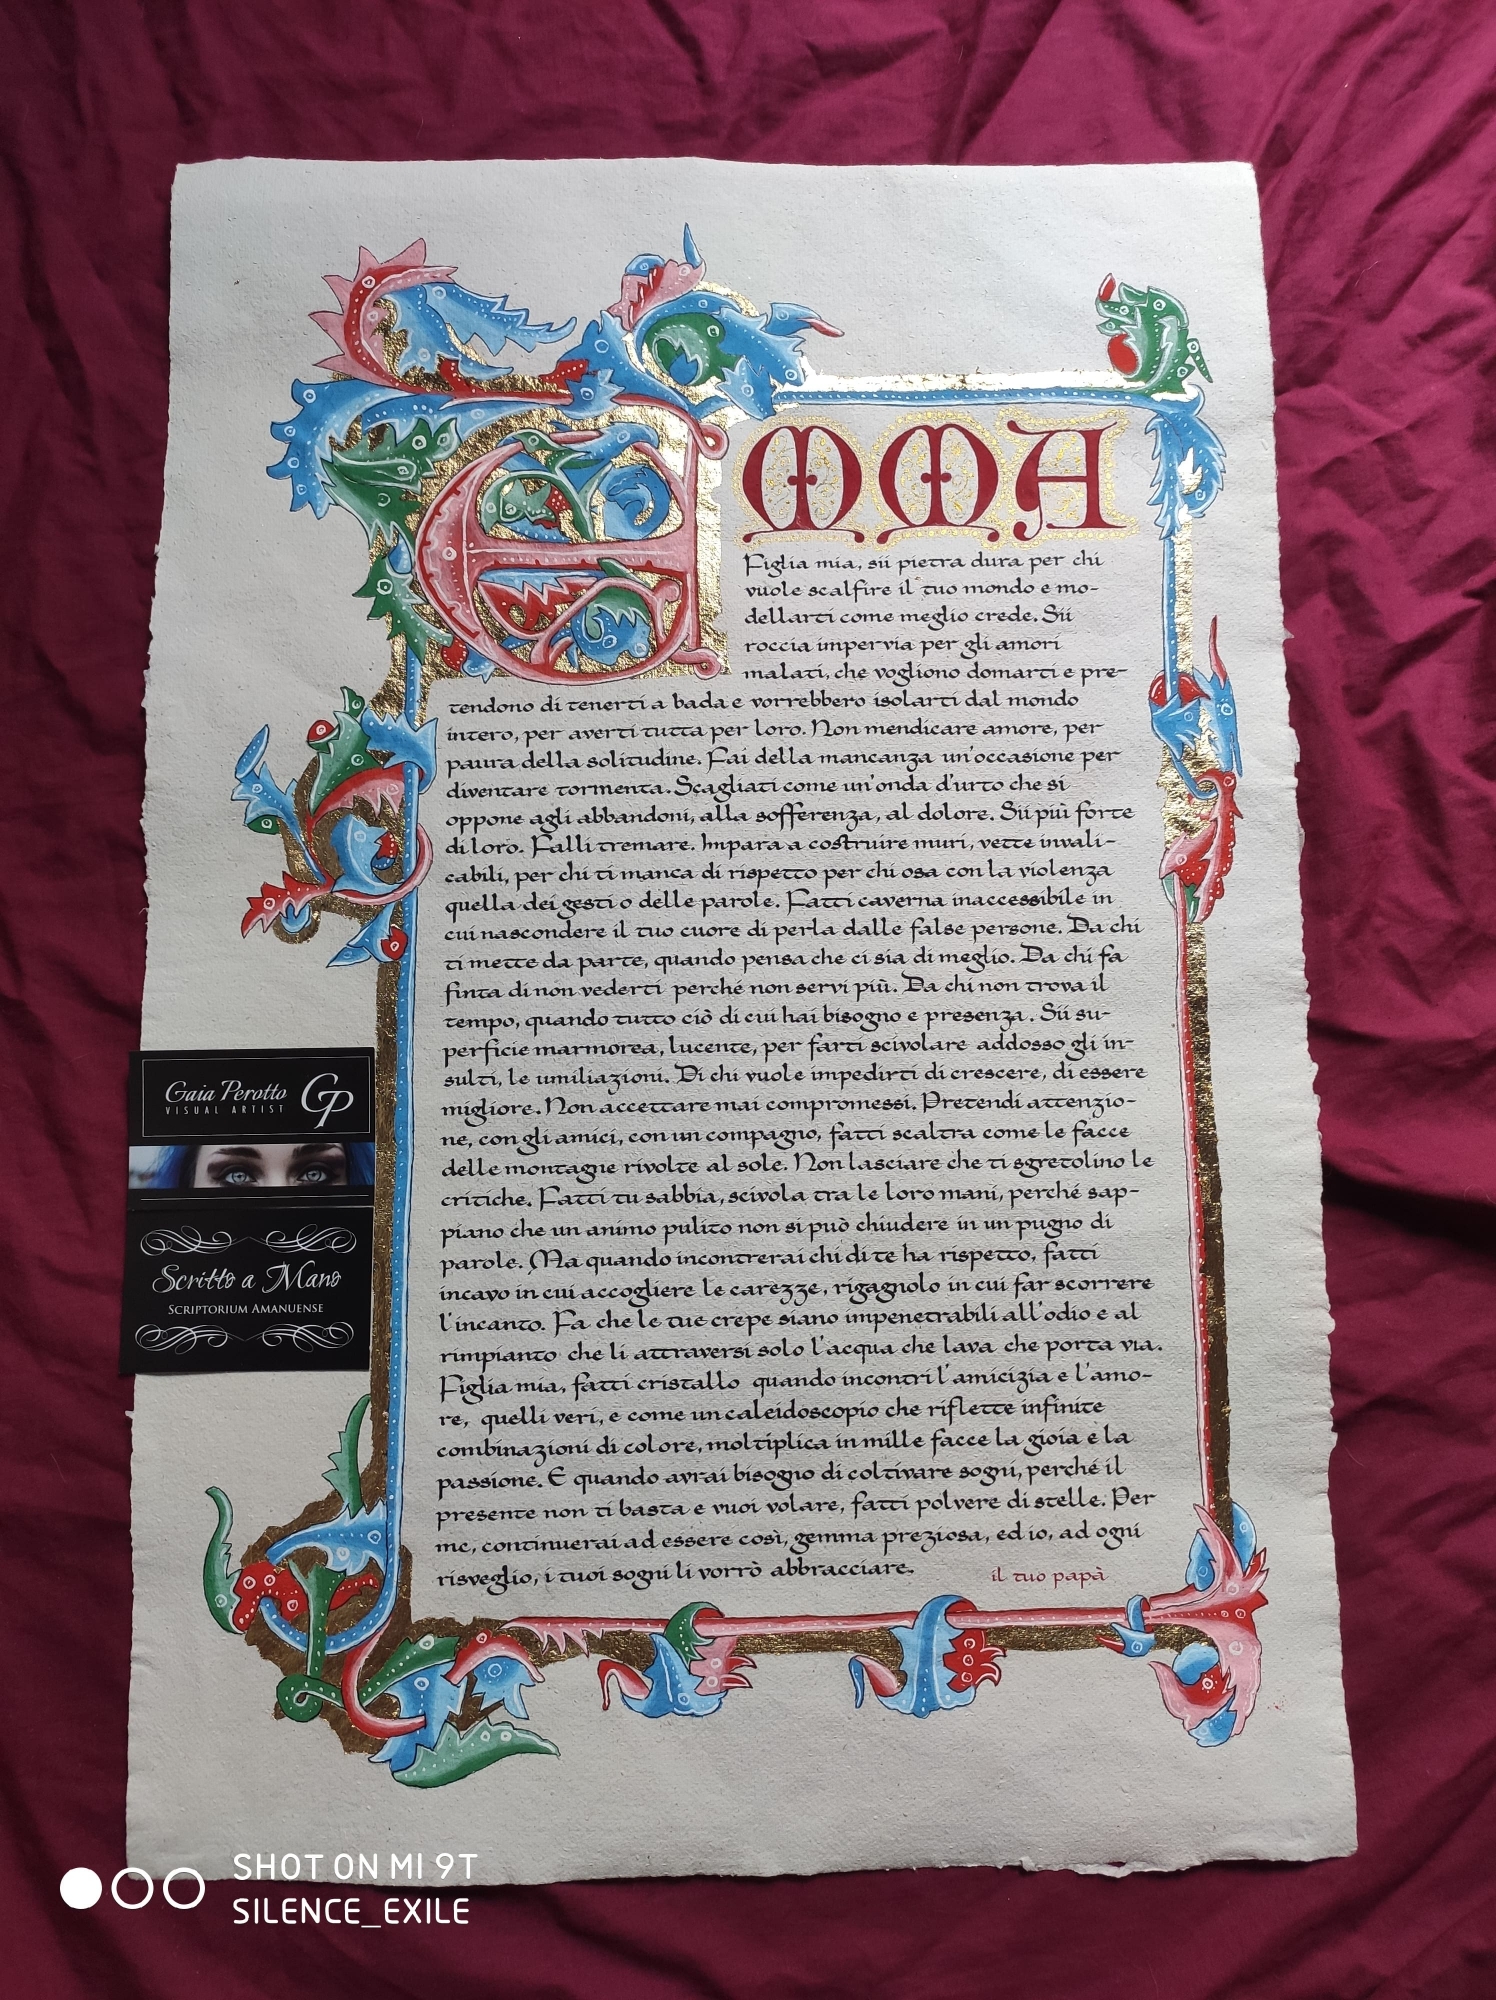 EMMA
Figlia mia, sii pietra dura per chi
vuole scalfire il tuo mondo e mo-
dellarti come meglio crede. Sii
roccia impervia per gli amori
malati, che vogliono domarti e pre-
tendono di tenerti a bada e vorrebbero isolarti dal mondo
intero, per averti tutta per loro. Non mendicare amore, per
paura della solitudine. Fai della mancanza un'occasione per
diventare tormenta. Scagliati come un'onda d'urto che si
oppone agli abbandoni, alla sofferenza, al dolore. Sii più forte
di loro. Falli tremare. Impara a costruire muri, vette invali-
cabili, per chi ti manca di rispetto per chi osa con la violenza
quella dei gesti o delle parole. Fatti caverna inaccessibile in
cui nascondere il tuo cuore di perla dalle false persone. Da chi
ti mette da parte, quando pensa che ci sia di meglio. Da chi fa
finta di non vederti perché non servi più. Da chi non trova il
tempo, quando tutto ciò di cui hai bisogno e presenza. Sii su-
perficie marmorea, lucente, per farti scivolare addosso gli in-
sulti, le umiliazioni. Di chi vuole impedirti di crescere, di essere
migliore. Non accettare mai compromessi. Pretendi attenzio-
ne, con gli amici, con un compagno, fatti scaltra come le facce
delle montagne rivolte al sole. Non lasciare che ti sgretolino le
critiche. Fatti tu sabbia, scivola tra le loro mani, perché sap-
piano che un animo pulito non si può chiudere in un pugno di
parole. Ma quando incontrerai chi di te ha rispetto, fatti
incavo in cui accogliere le carezze, rigagnolo in cui far scorrere
l'incanto. Fa che le tue crepe siano impenetrabili all'odio e al
rimpianto che li attraversi solo l'acqua che lava che porta via.
Figlia mia, fatti cristallo quando incontri l'amicizia e l'amo-
re, quelli veri, e come un caleidoscopio che riflette infinite
combinazioni di colore, moltiplica in mille facce la gioia e la
passione. E quando avrai bisogno di coltivare sogni, perché il
presente non ti basta e vuoi volare, fatti polvere di stelle. Per
me, continuerai ad essere così, gemma preziosa, ed io, ad ogni
risveglio, i tuoi sogni li vorrò abbracciare.
il tuo papà
Gaia Perotto GP
VISUAL ARTIST
Scritto a Mano
SCRIPTORIUM AMANUENSE
SHOT ON MI 9T
SILENCE_EXILE